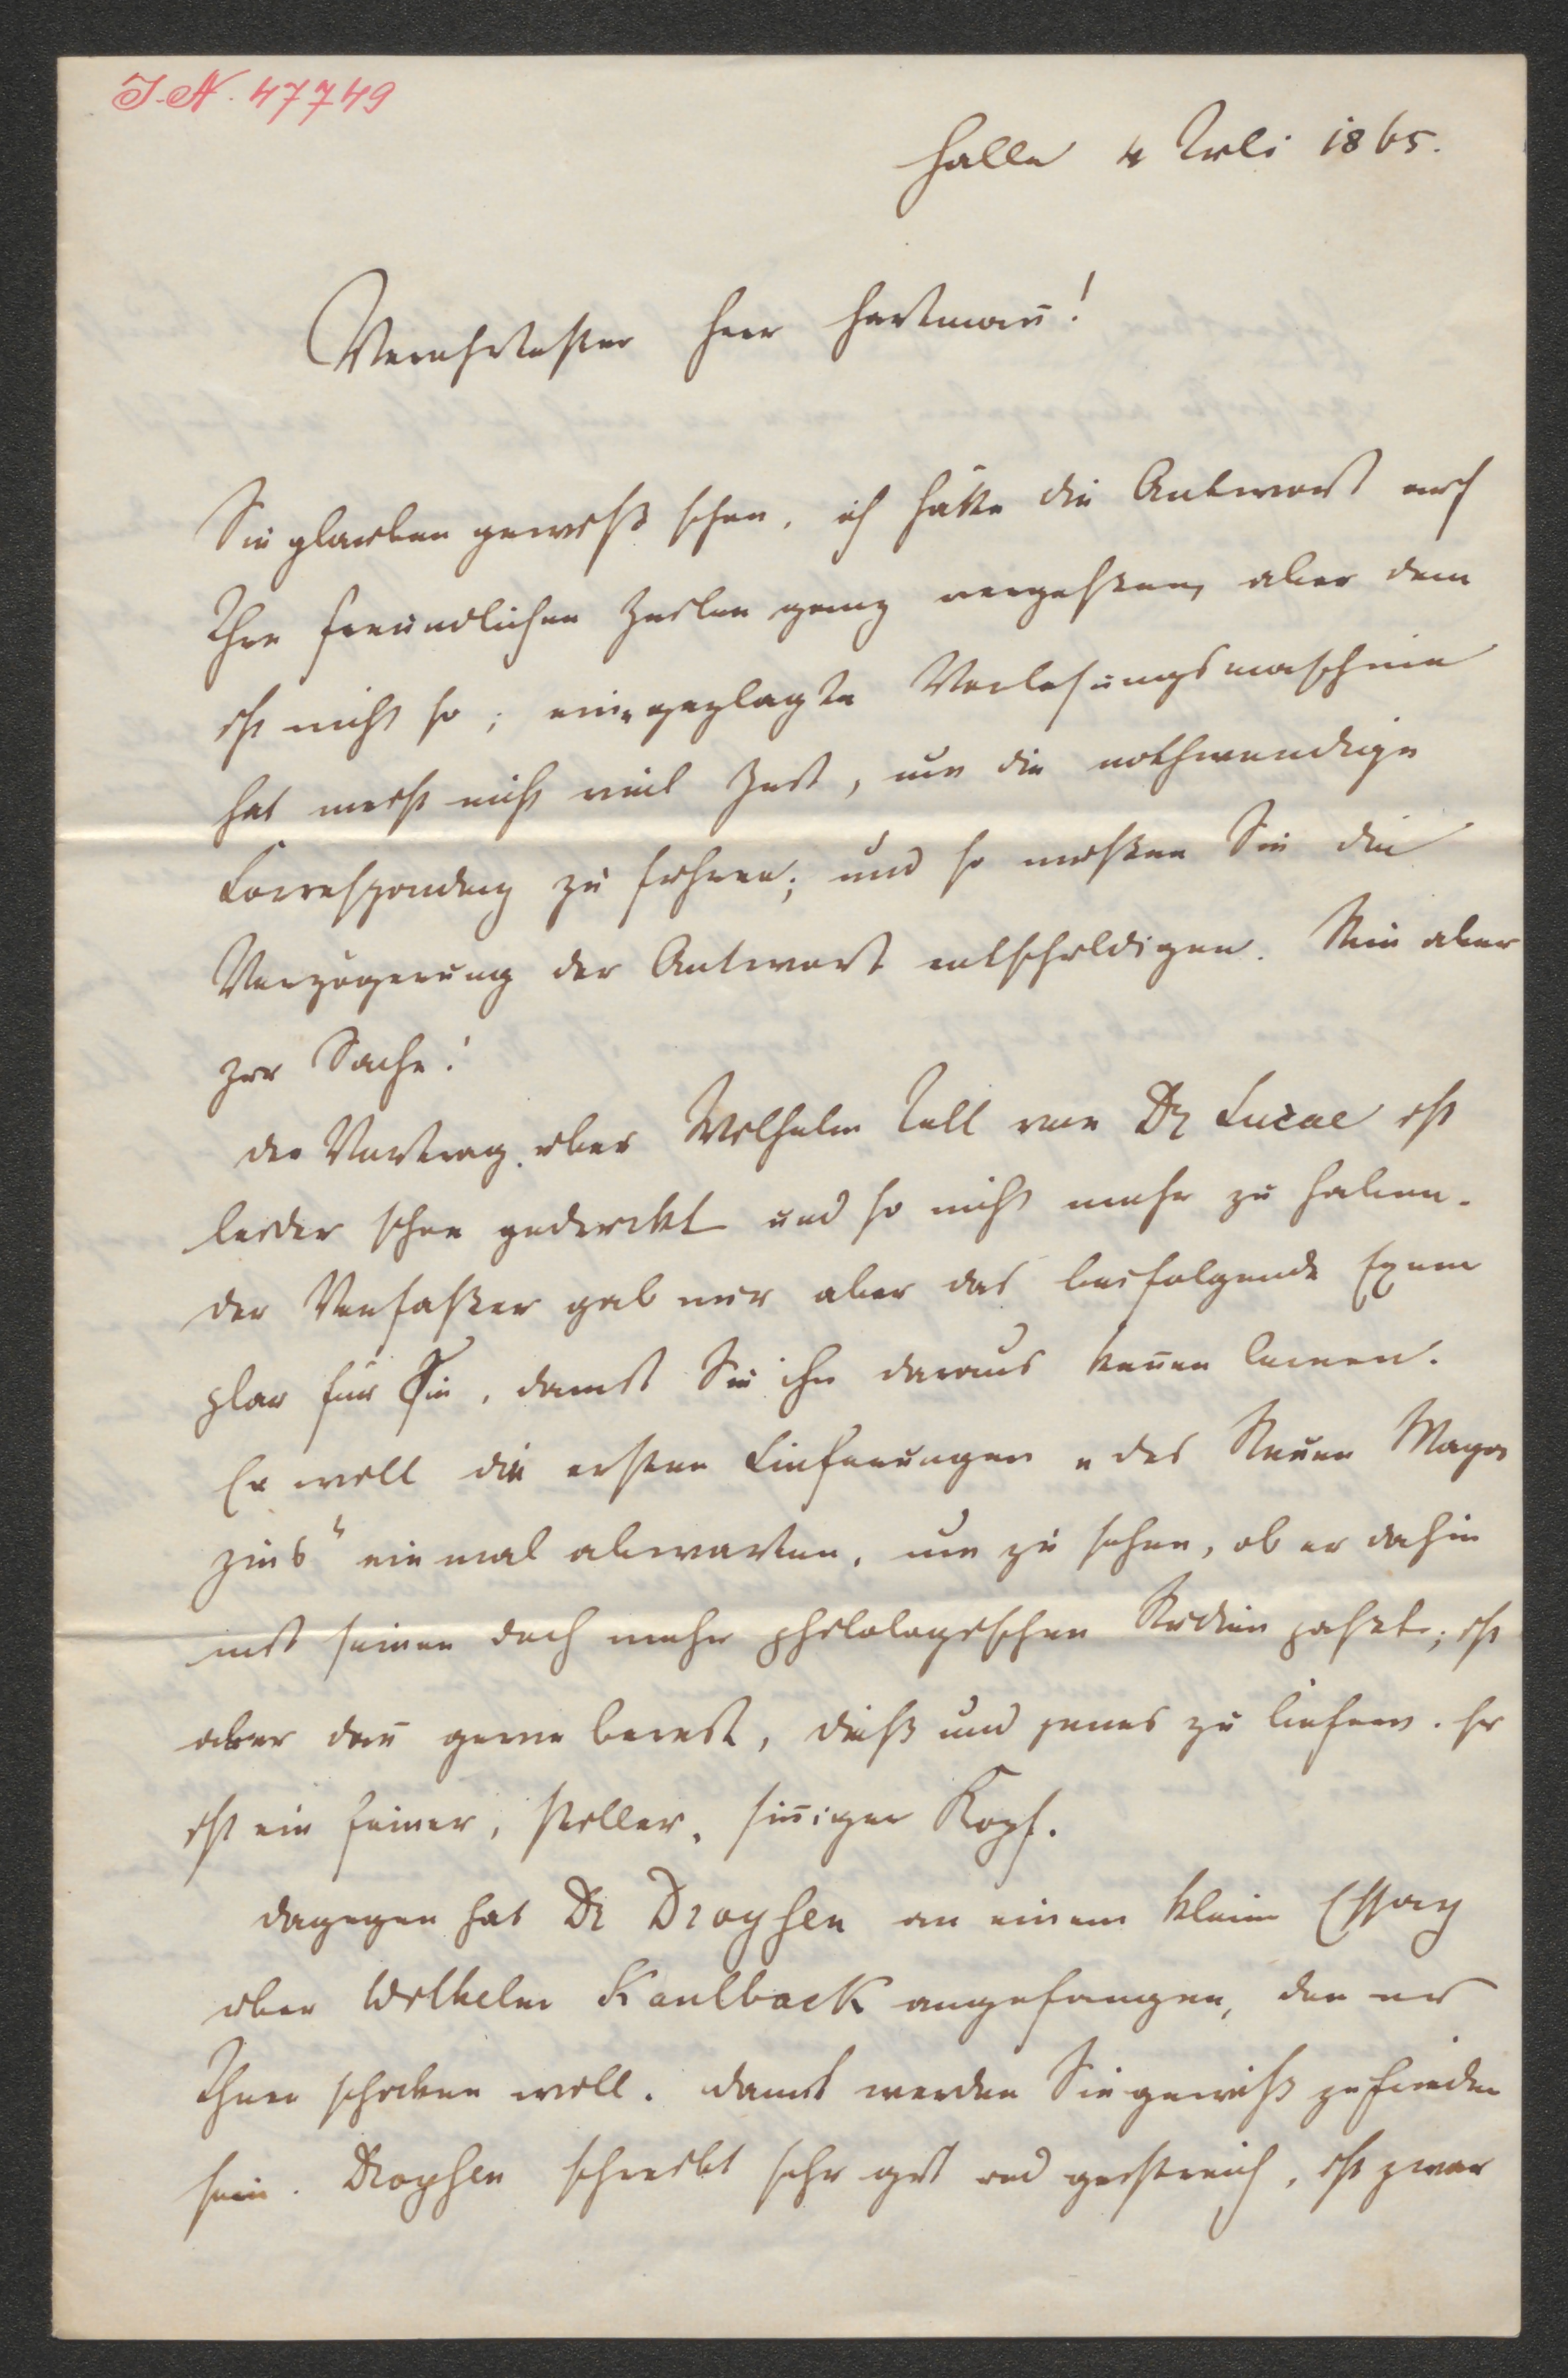 J.N. 47749
Halle 4 Juli 1865.
Verehrtester Herr Hartmañ!
Sie glauben gewiß schon, ich hätte die Antwort auf
Ihre freundlichen Zeilen ganz vergeßen, aber dem
ist nicht so; eine geplagte Vorlesungsmaschine
hat meist nicht viel Zeit, um die nothwendige
Correspondenz zu führen; und so müßen Sie die
Verzögerung der Antwort entschuldigen. Nun aber
zur Sache!
Der Vortrag über Wilhelm Tell von Dr Lucae ist
leider schon gedruckt und so nicht mehr zu haben.
Der Verfaßer gab mir aber das beifolgende Exem
plar für Sie, damit Sie ihn daraus keñen lernen.
Er will die ersten Lieferungen „des Neuen Maga
zins“ einmal abwarten, um zu sehen, ob er dahin
mit seinen doch mehr philologischen Studien paßte; ist
aber dañ gerne bereit, dieß und jenes zu liefern. Er
ist ein feiner, stiller, siñiger Kopf.
Dagegen hat Dr Droysen an einem kleinen Essay
über Wilhelm Kaulback angefangen, den er
Ihnen schicken will. Damit werden Sie gewiß zufrieden
sein. Droysen schreibt sehr gut und geistreich, ist zwar